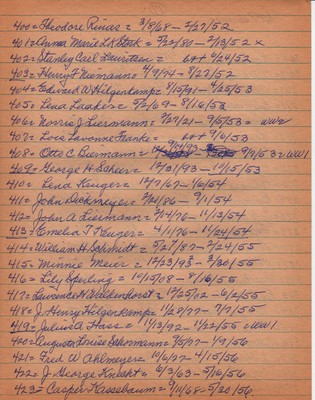 400 = Theodore Rinas = 3/5/68 - 2/27/52
401 = Anna Marie L K Stek = 5/22/80 - 2/13/52 x
402 = Stanley Carl Laurstein = bot 4/24/52
403 = Henry F. Niemann = 4/9/94 - 7/22/52
404 = Edward W. Hilgenkamp = 7/5/91 - 4/25/53
405 = Lena Lanker = 5/2/69 - 8/16/53
406 = Norris J. Liermann = 7/27/21 - 9/5/53 = WW2
407 = Lois Lavonne Franke = bot 9/6/53
408 = Otto C. Biermann = 9/9/53 = WW1
409 = George H. Scheer = 12/31/93 - 1/15/53
410 = Lena Kruger = 12/7/67 - 1/6/54
411 = John Dickmeyer = 2/24/86 - 9/1/54
412 = John A. Liermann = 2/4/76 - 11/13/54
413 = Emelia T. Kruger = 4/1/76 - 11/24/54
414 = William H. Schmidt = 5/27/87 - 2/24/55
415 = Minnie Meier = 12/23/93 - 3/30/55
416 = Lily Sperling = 10/15/08 - 8/16/55
417 = Laurence H. Waldenhorst = 12/25/02 - 6/2/55
418 = J. Henry Hilgenkamp = 1/28/77 - 7/7/55
419 = Julius A. Hass = 11/3/92 - 11/22/55 = WW1
420 = Augusta Louise Schormann = 3/5/77 - 1/9/56
421 = Fred W. Ahlmeyer = 10/6/37 - 4/15/56
422 = J. George Knecht = 6/3/63 - 5/16/56
423 = Casper Kassebaum = 9/11/68 - 5/20/56